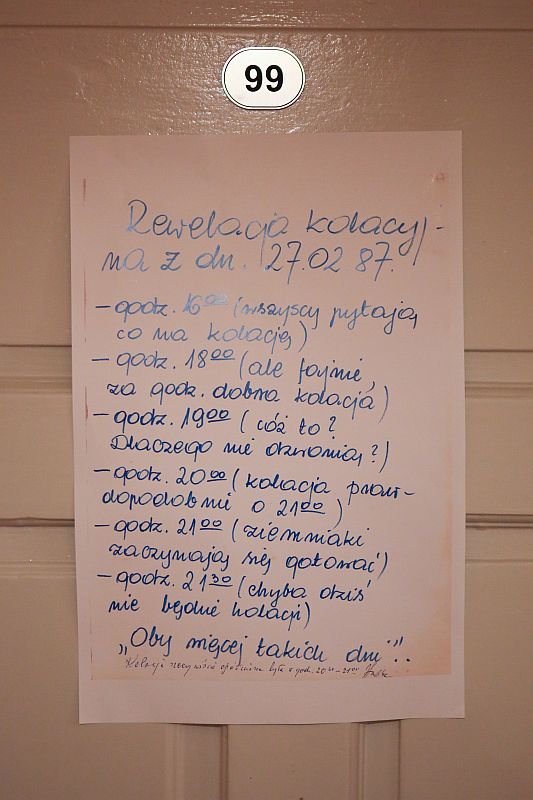 99
Rewelacja kolacyj-
na z dn. 27.02 87.
– godz. 16⁰⁰ (wszyscy pytają
co na kolację)
– godz. 18⁰⁰ (ale fajnie,
za godz. dobra kolacja)
– godz. 19⁰⁰ (cóż to?
Dlaczego nie dzwonią?)
– godz. 20⁰⁰ (kolacja praw-
dopodobnie o 21⁰⁰)
– godz. 21⁰⁰ (ziemniaki
zaczynają się gotować)
– godz. 21³⁰ (chyba dziś
nie będzie kolacji)
„Oby więcej takich dni”!.
Kolacja rzeczywiście opóźniona była z godz. 20